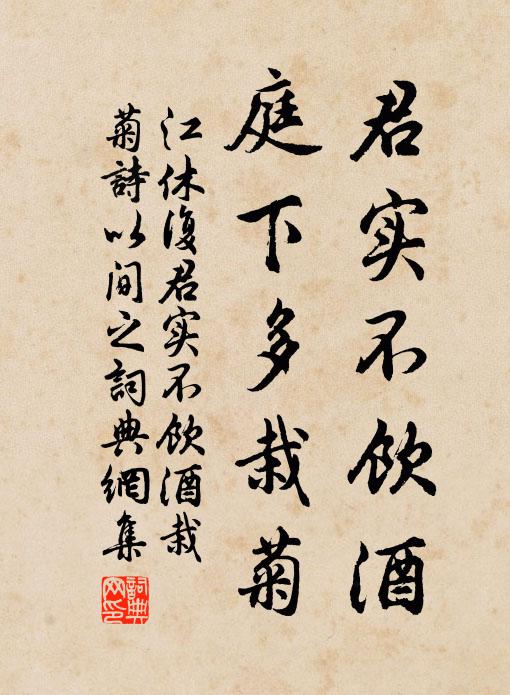 君实不飲酒
庭下多栽菊
江休復君实不飲酒栽
菊詩以间之詞典網集
詞典
网印